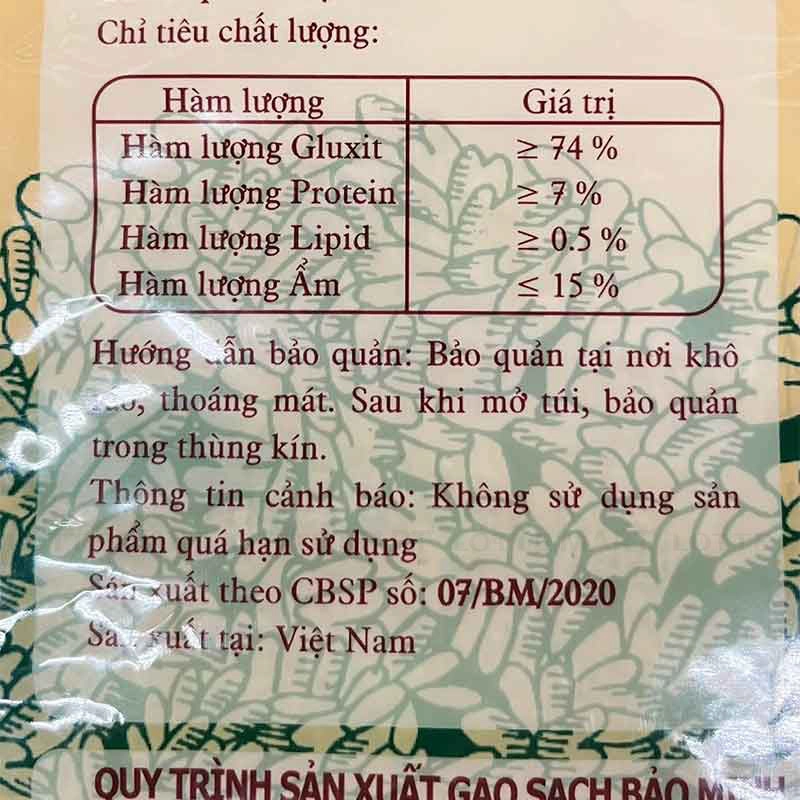 Chỉ tiêu chất lượng:
Hàm lượng Giá trị
Hàm lượng Gluxit ≥ 74 %
Hàm lượng Protein ≥ 7 %
Hàm lượng Lipid ≥ 0.5 %
Hàm lượng Ẩm ≤ 15 %
Hướng dẫn bảo quản: Bảo quản tại nơi khô
ráo, thoáng mát. Sau khi mở túi, bảo quản
trong thùng kín.
Thông tin cảnh báo: Không sử dụng sản
phẩm quá hạn sử dụng
Sản xuất theo CBSP số: 07/BM/2020
Sản xuất tại: Việt Nam
QUY TRÌNH SẢN XUẤT GẠO SẠCH BẢO MINH